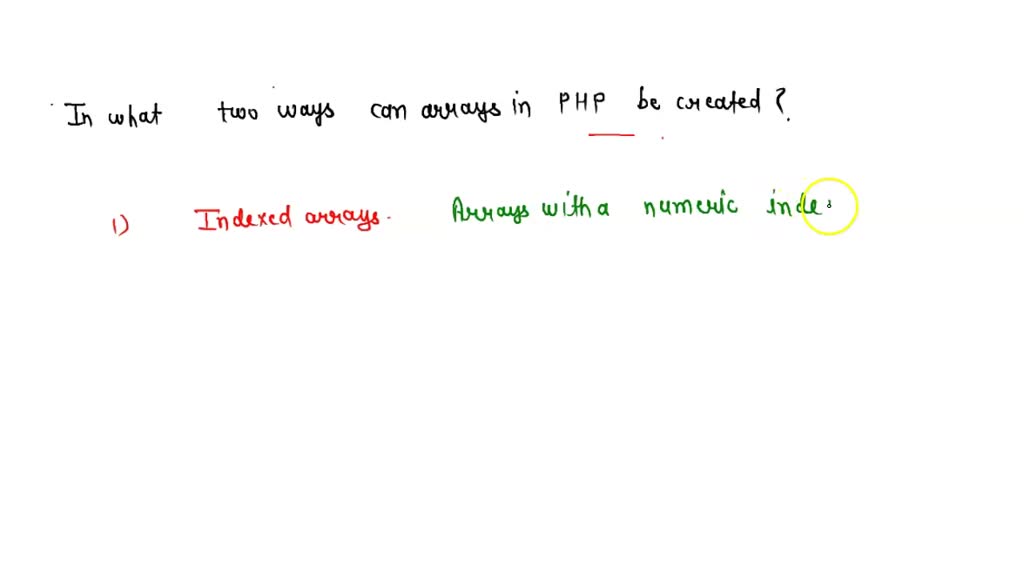 In what two ways can arrays in PHP be created?
1) Indexed arrays. Arrays with a numeric inde